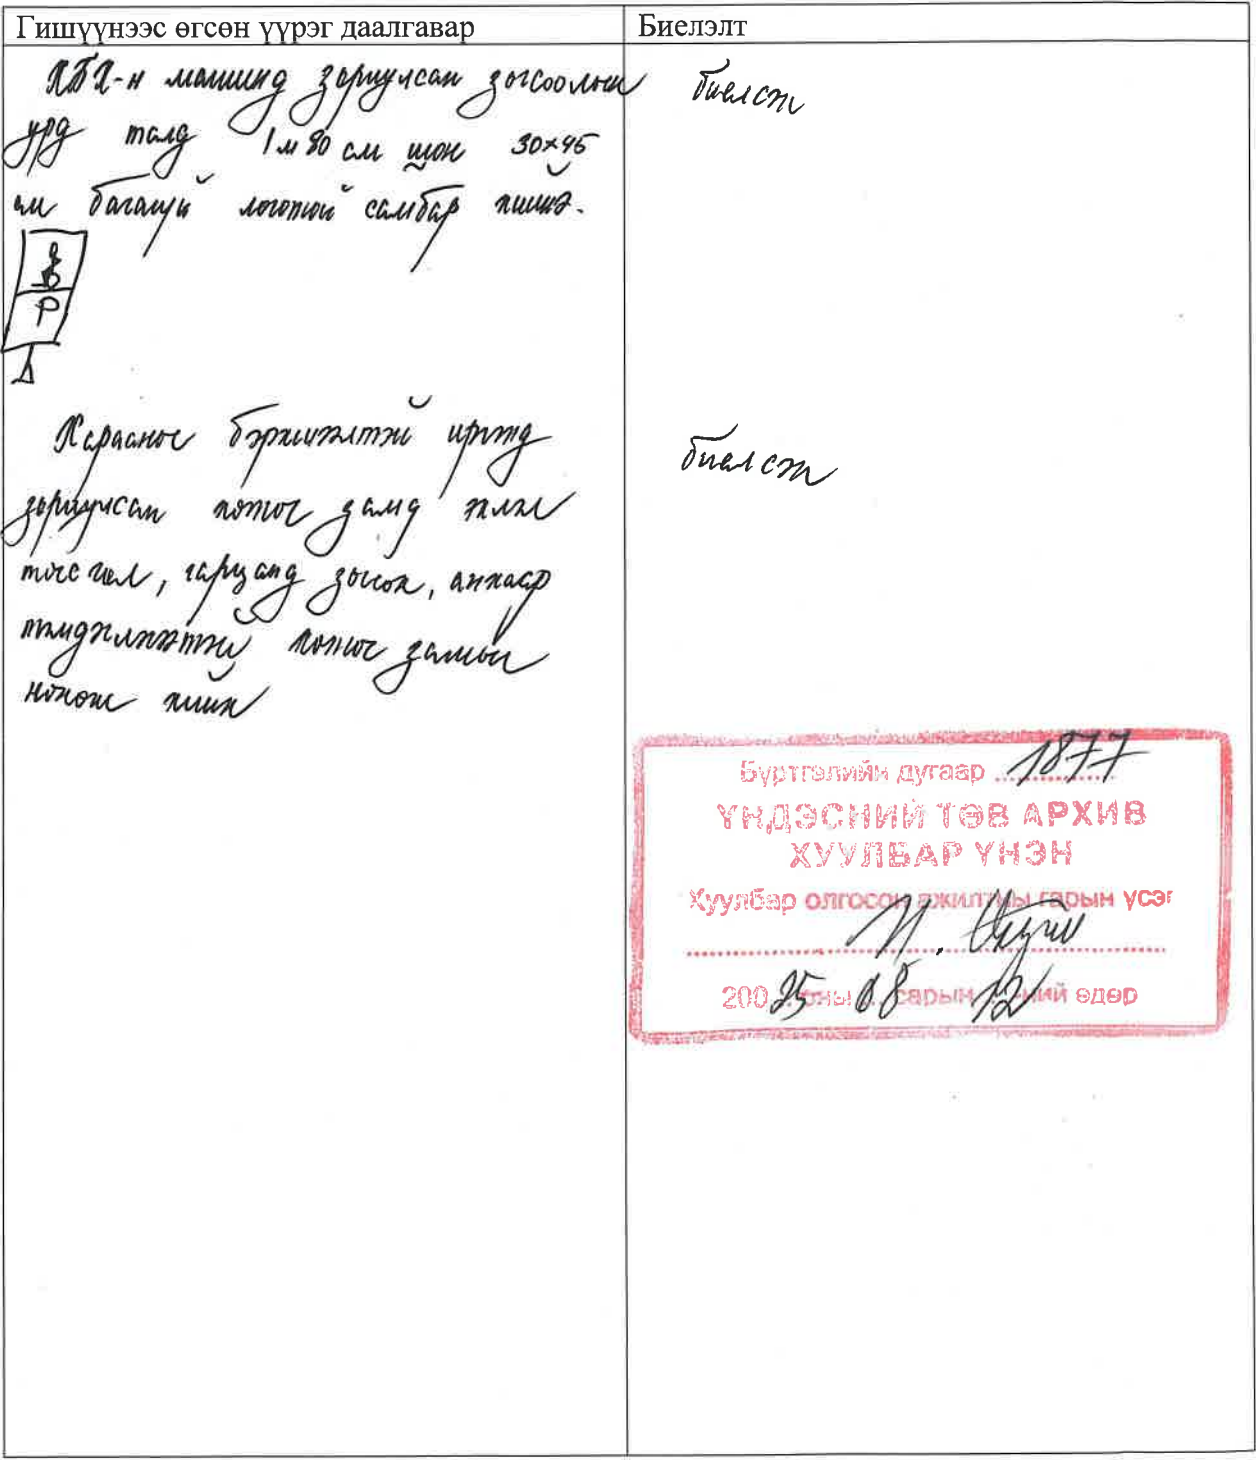 Гишүүнээс өгсөн үүрэг даалгавар
Биелэлт
ХБХ-н машинд зориулсан зогсоолын
урд талд 1м 80 см шон 30×45
см багагүй логотой самбар хийнэ.
биелсэн
P
Харааны бэрхшээлтэй иргэд
зориулсан хөтөч замд эхлэл
төгсгөл, гарцанд зогсох, анхаар
тэмдэглэгээтэй хөтөч замыг
нөхөж хийх
биелсэн
Бүртгэлийн дугаар 1877
ҮНДЭСНИЙ ТӨВ АРХИВ
ХУУЛБАР ҮНЭН
Хуулбар олгосон ажилтны гарын үсэг
200 25 оны 08 сарын 12 ний өдөр